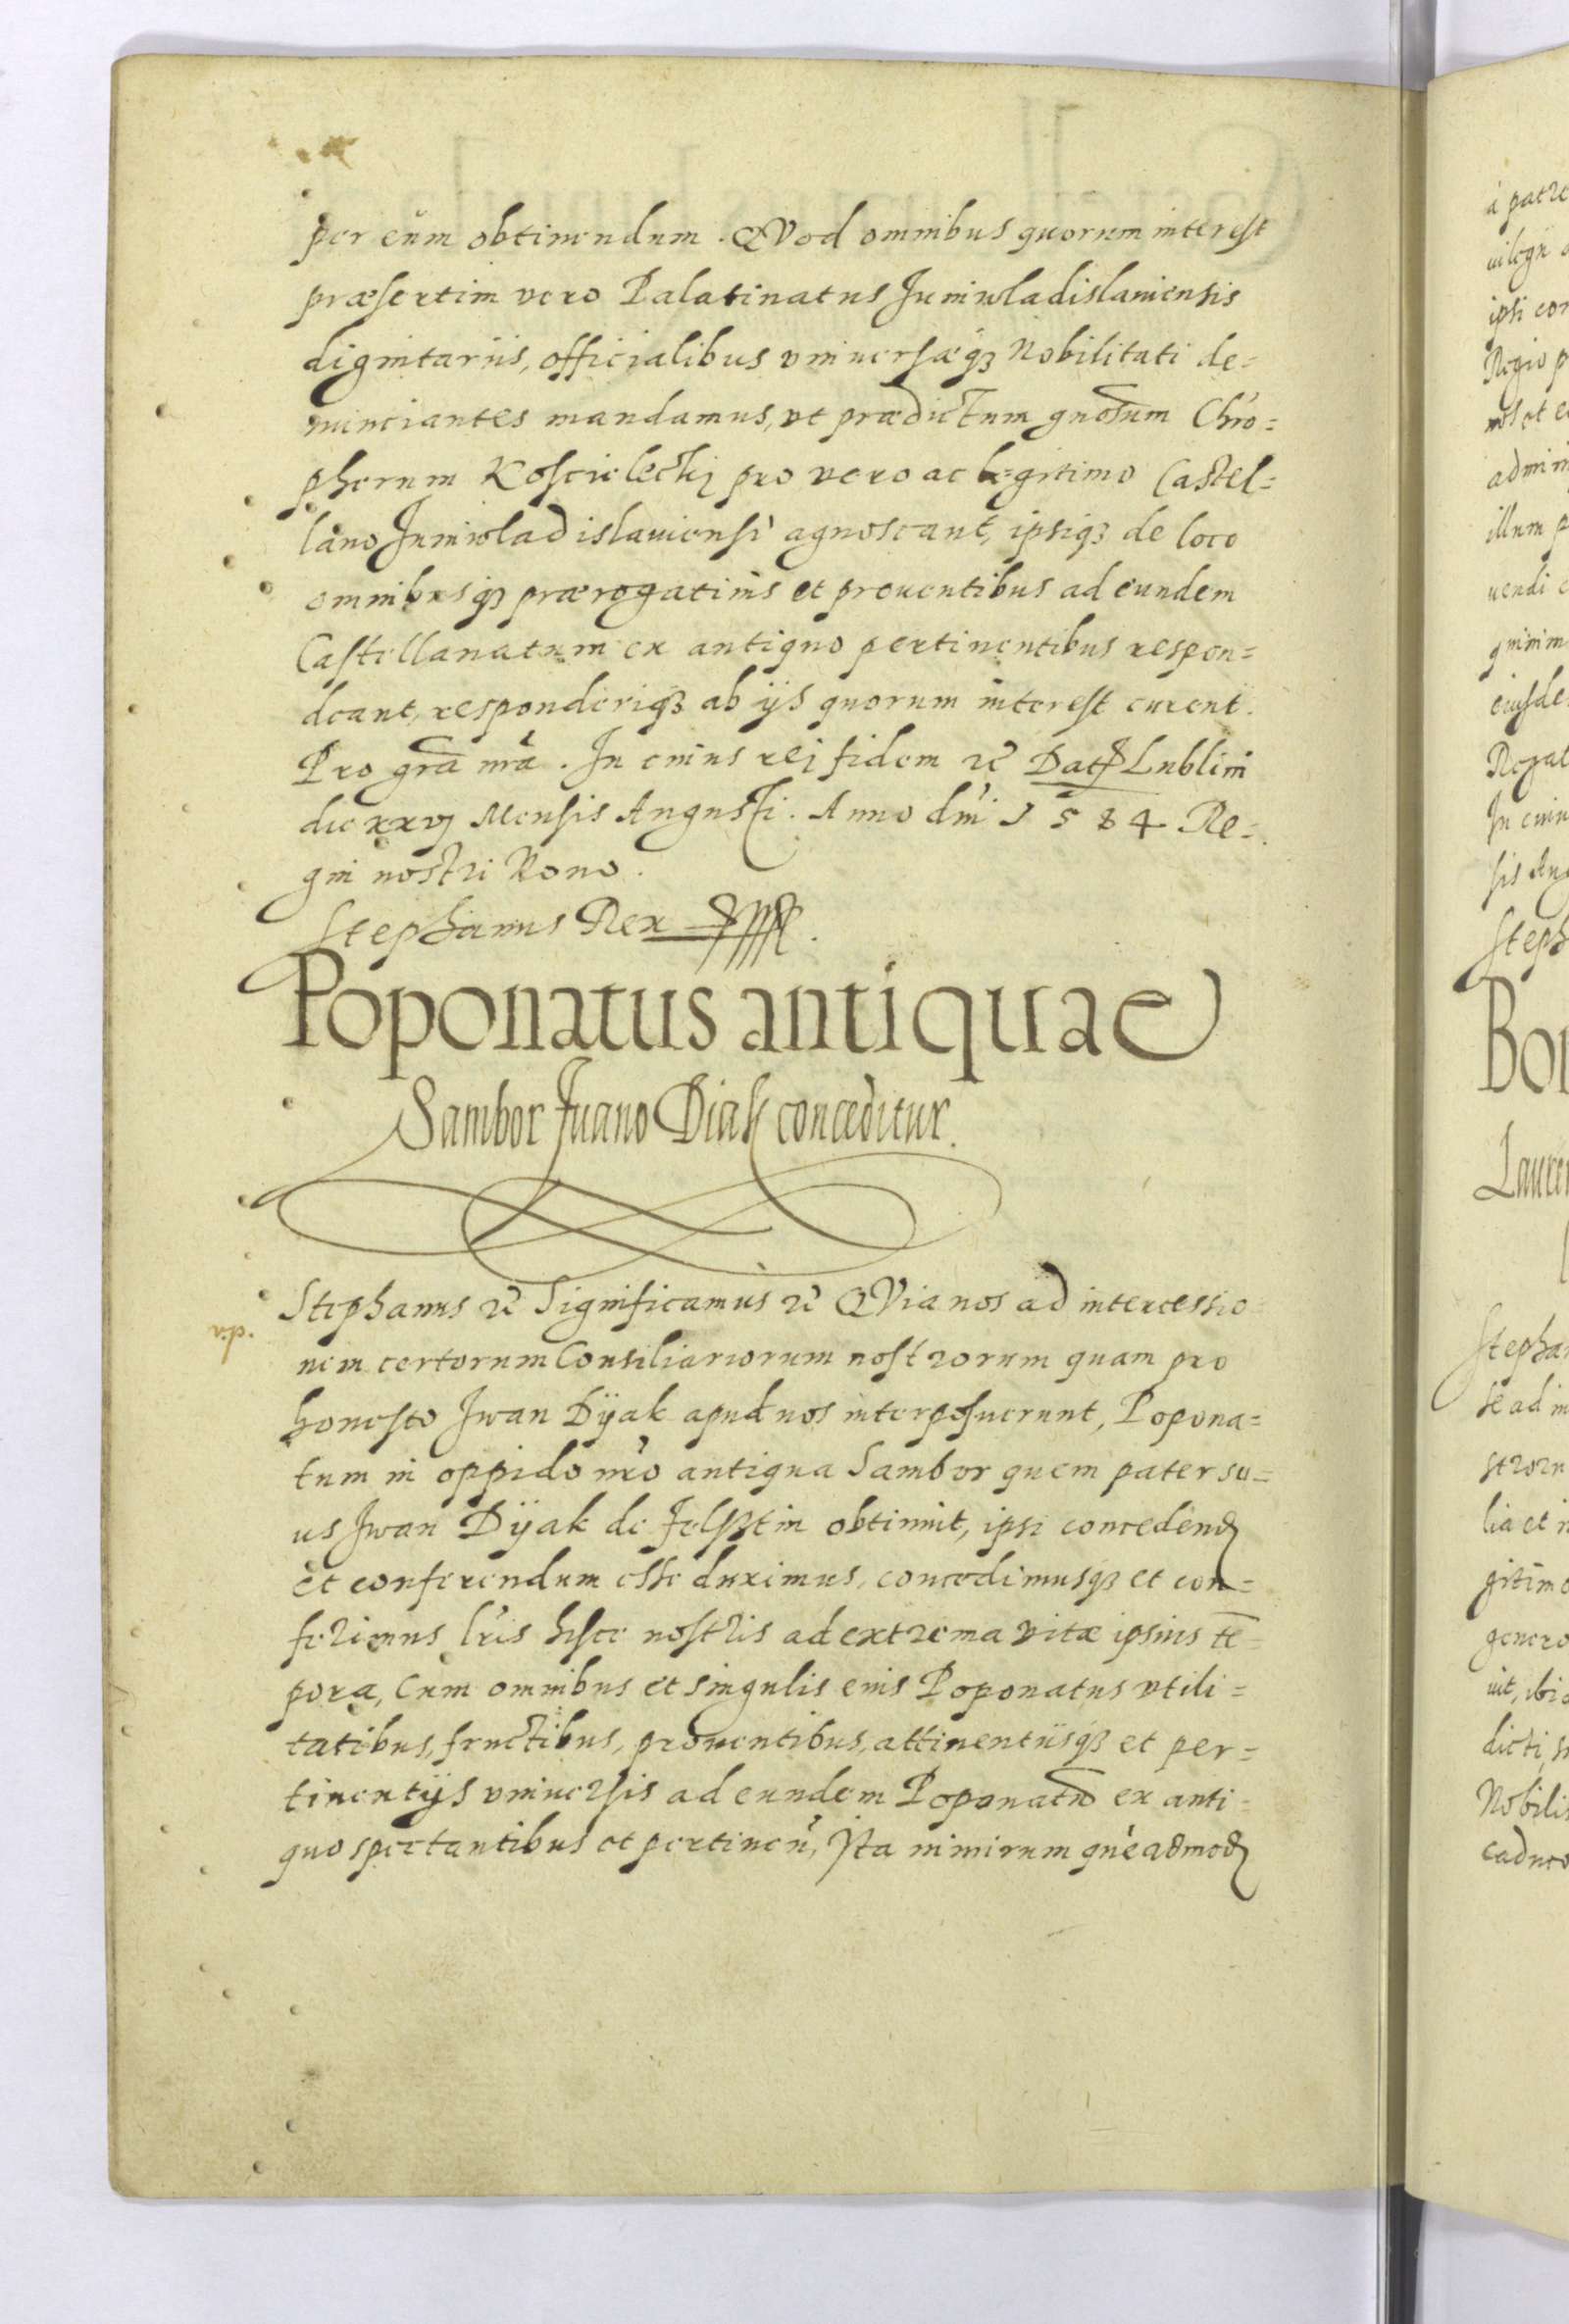 per eum obtinendum. QVod omnibus quorum interest
præsertim vero Palatinatus Juniwladislauiensis
dignitariis, officialibus vniuersæq₃ Nobilitati de=
nunciantes mandamus, vt prædictum gnosum Chro=
pherum Koscielecki pro vero ac legitimo Castel=
lano Juniwladislauiensi agnoscant, ipsiq₃ de loco
omnibusq₃ prærogatiuis et prouentibus ad eundem
Castellanatum ex antiquo pertinentibus respon=
deant, responderiq₃ ab ijs quorum interest curent.
Pro gra nra. In cuius rei fidem &c Dat Lublini
die xxvj Mensis Augusti. Anno dni 1584 Re=
gni nostri Nono.
Stephanus Rex
Poponatus antiquae
Sambor Juano Diak conceditur.
Stephanus &c Significamus &c QVia nos ad intercessio=
nem certorum Consiliariorum nostrorum quam pro
honesto Jwan Dÿak apud nos interposuerunt, Popona=
tum in oppido nro antiqua Sambor quem pater su=
us Jwan Dÿak de Felsztin obtinuit, ipsi concedend
et conferendum esse duximus, concedimusq₃ et con=
ferimus lris hisce nostris ad extrema vitæ ipsius te=
pora, Cum omnibus et singulis eius Poponatus vtili=
tatibus, fructibus, prouentibus, attinentiisq₃ et per=
tinentijs vniuersis ad eundem Poponatu ex anti=
quo spectantibus et pertinen, Ita nimirum queadmod
à patre
uilegii
ipsi con
Regio p
admin
illum p
uendi
eiusde
Regal
In cuiu
sis Aug
Steph
Bon
Lauren
Stephan
se ad in
lia et
gitimo
genero
dicti,
Nobilis
caduco